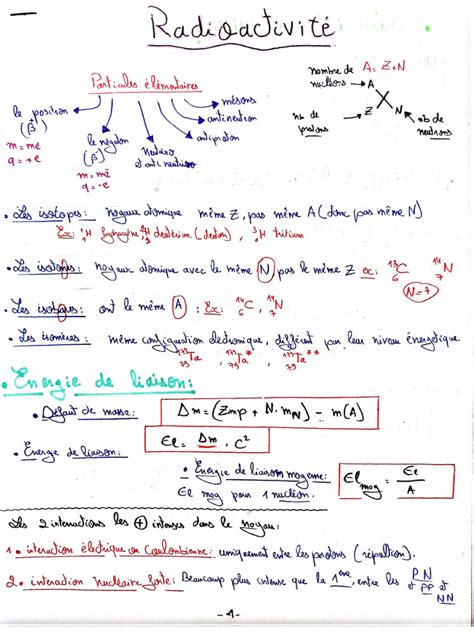 Radioactivité
Particules élémentaires
le position
(β⁺)
m = me
q = +e
le négaton
(β⁻)
m = me
q = -e
neutrino
et anti neutrino
antiproton
antineutron
mésons
nombre de
nucléons → A
A = Z+N
X
Z
N
nb de
protons
nb de
neutrons
• Les isotopes : noyaux atomique même Z, pas même A (donc pas même N)
Ex: ¹₁H hydrogène, ²₁H deutérium (deuton), ³₁H tritium
• Les isotones : noyaux atomique avec le même N, pas le même Z ex: ¹³₆C ¹⁴₇N
N=7
• Les isobares : ont le même A : Ex: ¹⁴C , ¹⁴N
• Les isomères : même configuration électronique, diffèrent par leur niveau énergétique
Ta , Ta* , Ta**
• Energie de liaison :
• Défaut de masse : Δm = (Zmp + N·mN) − m(A)
• Energie de liaison : El = Δm · C²
• Energie de liaison moyenne :
El moy pour 1 nucléon.
El moy = El / A
Les 2 interactions les ⊕ intenses dans le noyau :
1 • interaction électrique ou Coulombienne : uniquement entre les protons (répulsion).
2 • interaction Nucléaire forte : Beaucoup plus intense que la 1ère, entre les PN et PP et NN
- 1 -